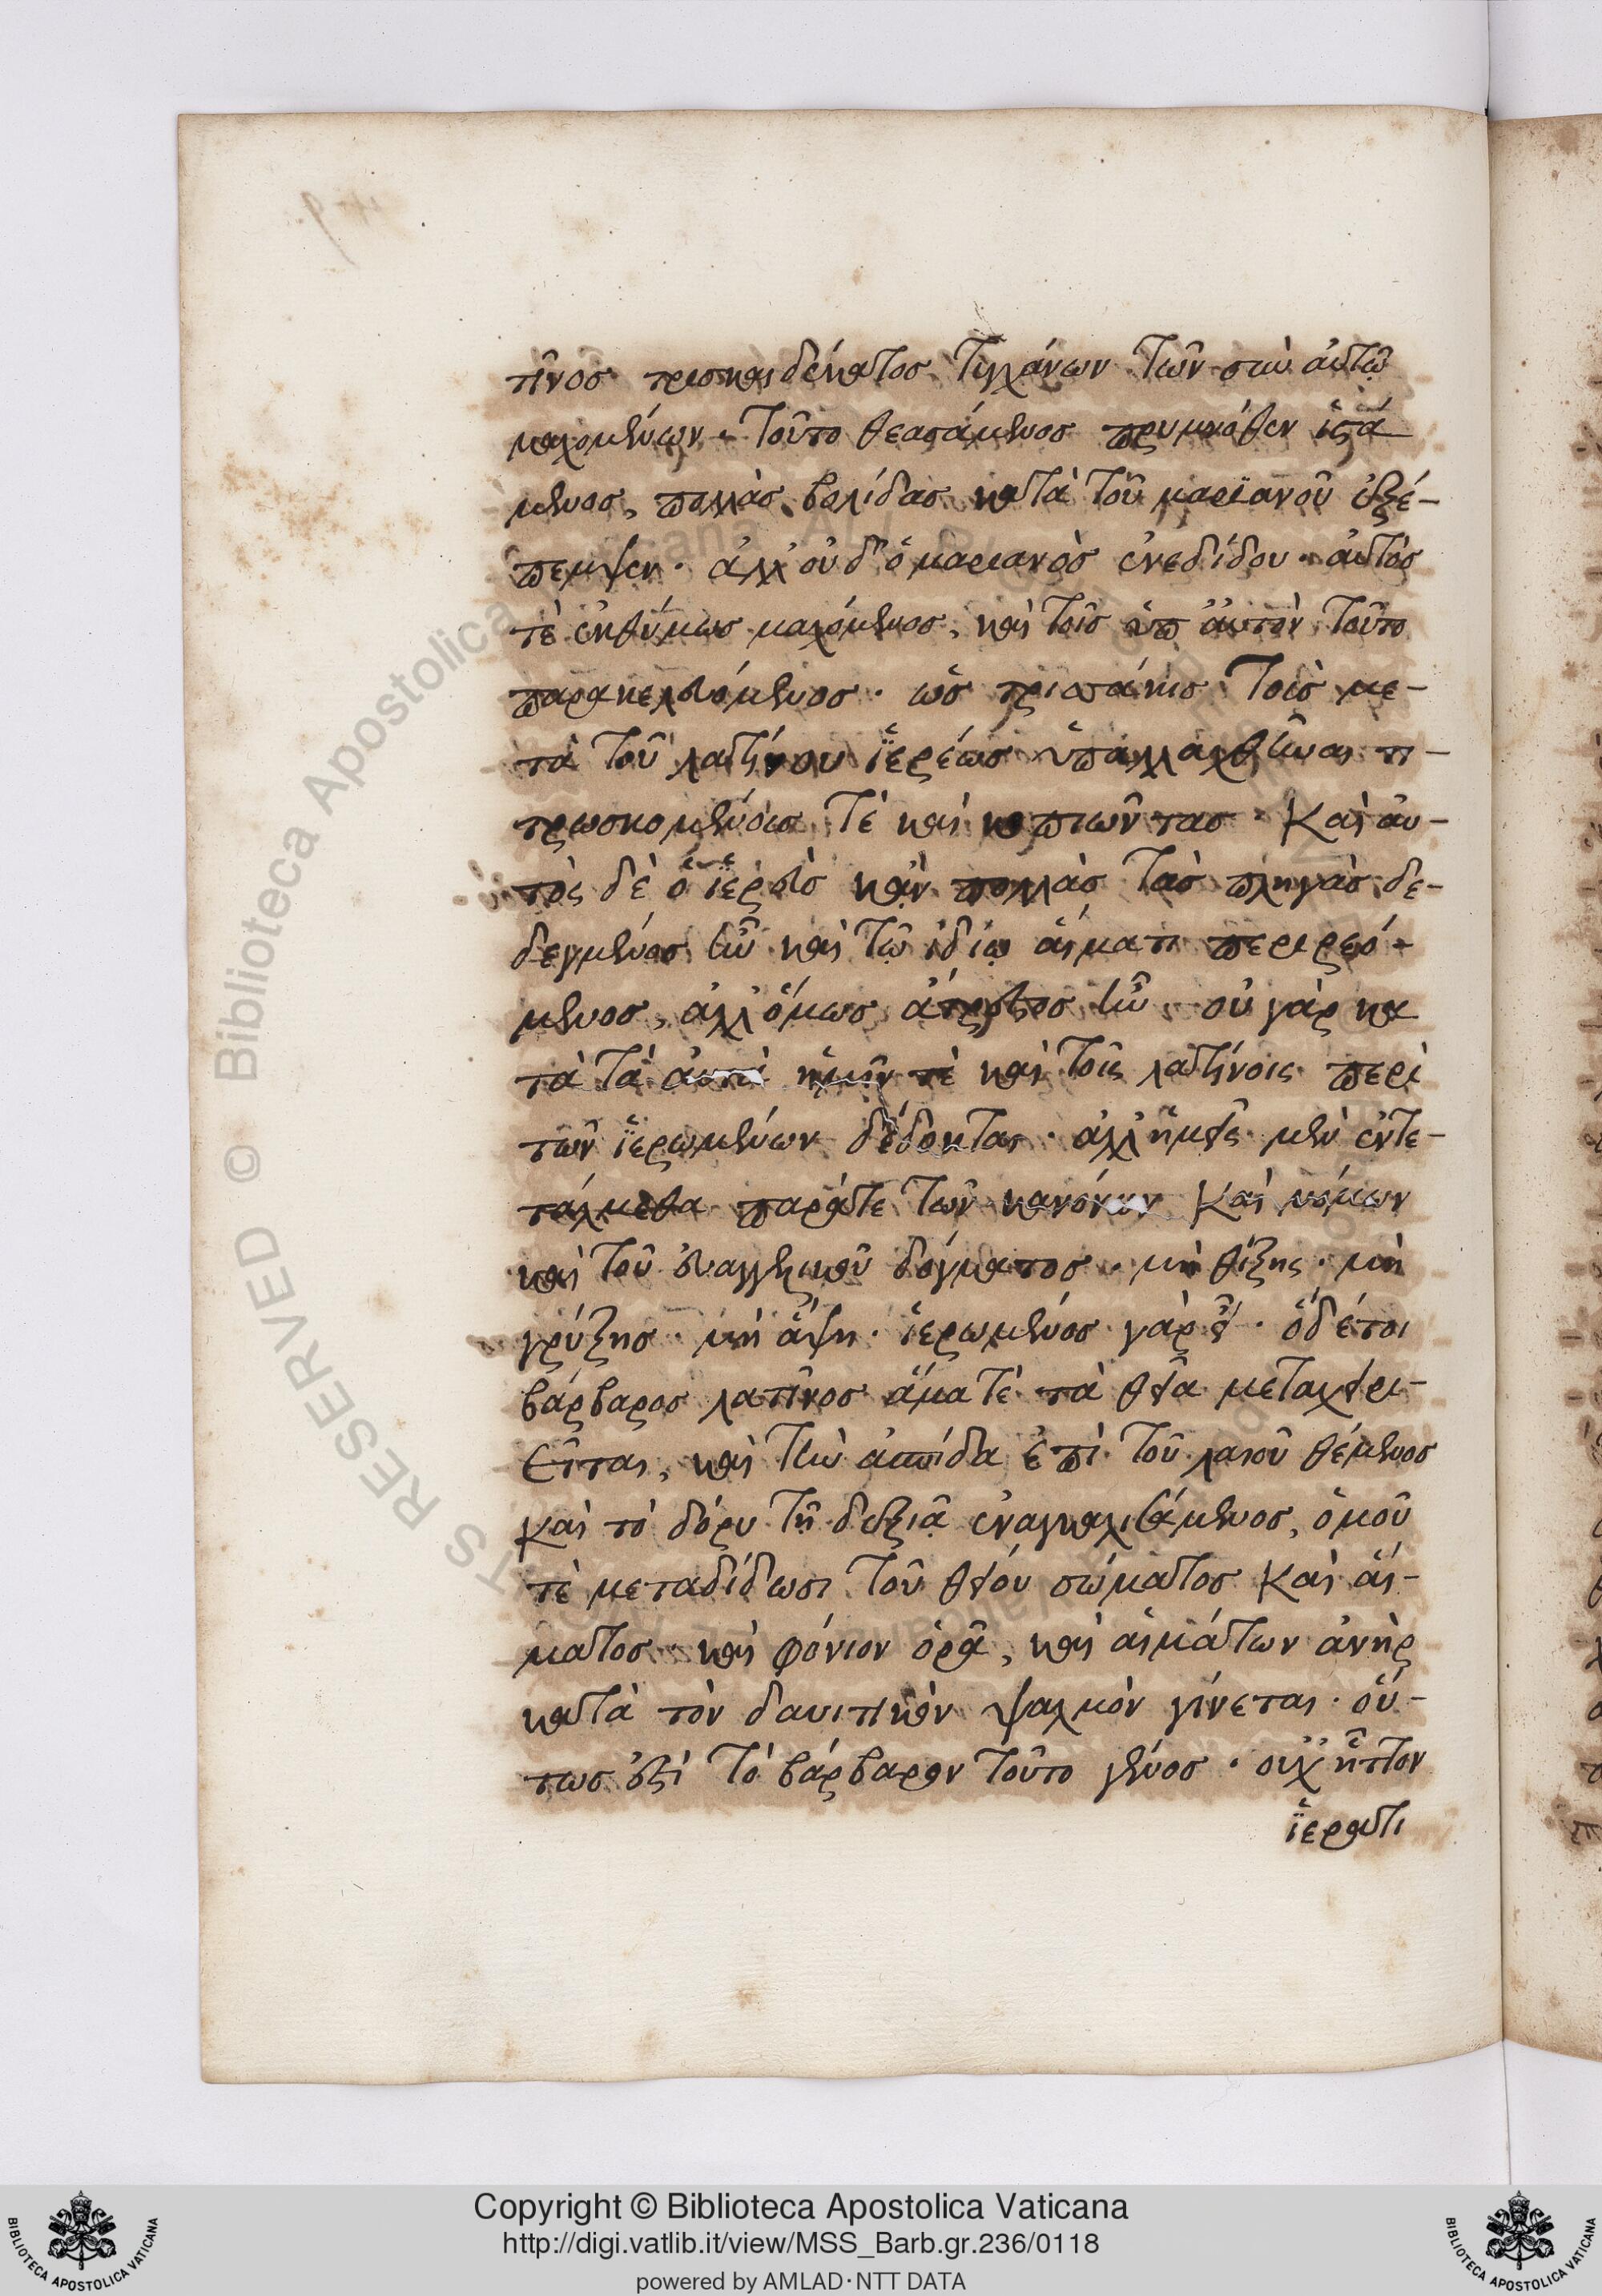 τῖνος τρισκαιδέκατος τυγχάνων τῶν σὺν αὐτῷ
μαχομένων. Τοῦτο θεασάμενος πρυμνόθεν ἱστά
μενος, πολλὰς βολίδας κατὰ τοῦ μαριανοῦ ἐξέ-
πεμψεν. ἀλλ' οὐδ' ὁ μαριανὸς ἐνεδίδου. αὐτός
τὲ ἐκθύμως μαχόμενος, καὶ τοῖς ὑπ' αὐτὸν τοῦτο
παρακελευόμενος. ὡς τρισσάκις τοὺς με-
τὰ τοῦ λατίνου ἱερέως ὑπαλλαχθῆναι τι-
τρωσκομένους τὲ καὶ κοπιῶντας. Καὶ αὐ-
τὸς δὲ ὁ ἱερεὺς κἂν πολλὰς τὰς πληγὰς δε-
δεγμένος ἦν καὶ τῷ ἰδίῳ αἵματι περιρρεό-
μενος, ἀλλ' ὅμως ἄτρεστος ἦν. οὐ γὰρ κα
τὰ τὰ αὐτὰ ἡμῖν τὲ καὶ τοῖς λατίνοις περὶ
τῶν ἱερωμένων δέδοκται. ἀλλ' ἡμεῖς μὲν ἐντε-
τάλμεθα παρά τε τῶν κανόνων Καὶ νόμων
καὶ τοῦ εὐαγγελικοῦ δόγματος. μὴ θίξης. μὴ
γρύξης. μὴ ἅψη. ἱερωμένος γὰρ εἶ. ὁ δέ τοι
βάρβαρος λατῖνος ἅμα τὲ τὰ θεῖα μεταχειρι-
εῖται, καὶ τὴν ἀσπίδα ἐπὶ τοῦ λαιοῦ θέμενος
καὶ τὸ δόρυ τῇ δεξιᾷ ἐναγκαλισάμενος, ὁμοῦ
τὲ μεταδίδωσι τοῦ θείου σώματος Καὶ αἵ-
ματος. καὶ φόνιον ὁρᾷ, καὶ αἱμάτων ἀνὴρ
κατὰ τὸν δαυιτικὸν ψαλμὸν γίνεται. οὕ-
τως ἐστὶ τὸ βάρβαρον τοῦτο γένος. οὐχ ἧττον
ἱερατι
Copyright © Biblioteca Apostolica Vaticana
http://digi.vatlib.it/view/MSS_Barb.gr.236/0118
powered by AMLAD·NTT DATA